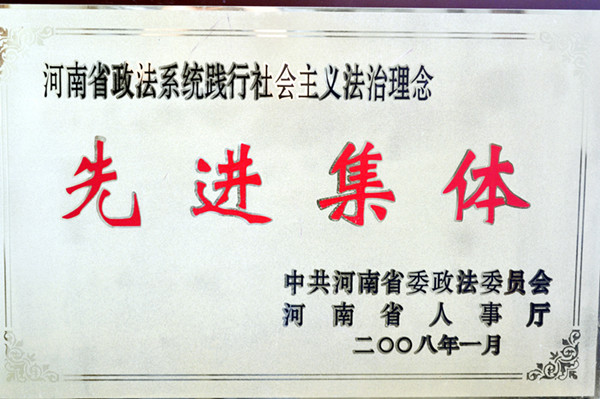 河南省政法系统践行社会主义法治理念
先进集体
中共河南省委政法委员会
河南省人事厅
二〇〇八年一月